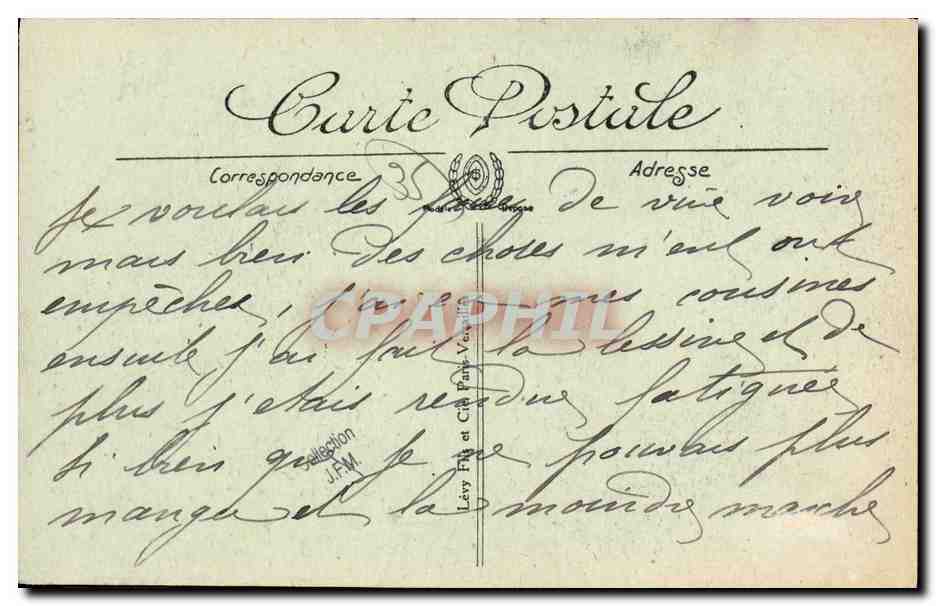 Carte Postale
Correspondance
Adresse
35
Je voulais les de vive voix
mais bien des choses m'en ont
empêchée, j'ai eu mes cousines
ensuite j'ai fait la lessive et de
plus j'étais rendue fatiguée
si bien que je ne pouvais plus
manger et la moindre marche
Lévy Fils et Cie, Paris-Versailles
Collection
J.F.M.
CPAPHIL